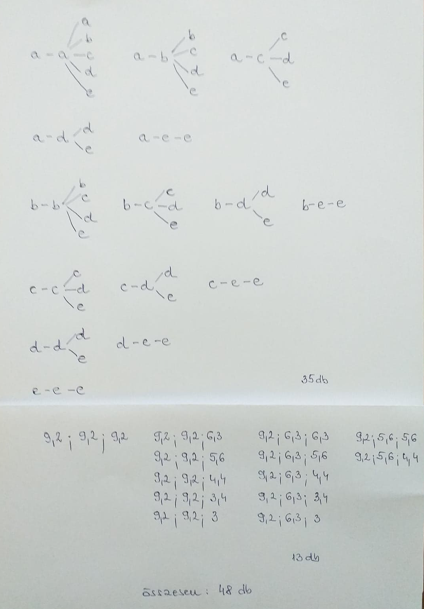 a - a a b c d e a - b b c d e a - c c d e
a - d d e a - e - e
b - b b c d e b - c c d e b - d d e b - e - e
c - c c d e c - d d e c - e - e
d - d d e d - e - e
e - e - e
35 db
9,2 ; 9,2 ; 9,2 9,2 ; 9,2 ; 6,3 9,2 ; 6,3 ; 6,3 9,2 ; 5,6 ; 5,6
9,2 ; 9,2 ; 5,6 9,2 ; 6,3 ; 5,6 9,2 ; 5,6 ; 4,4
9,2 ; 9,2 ; 4,4 9,2 ; 6,3 ; 4,4
9,2 ; 9,2 ; 3,4 9,2 ; 6,3 ; 3,4
9,2 ; 9,2 ; 3 9,2 ; 6,3 ; 3
13 db
összesen : 48 db